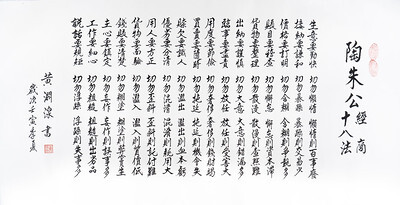 陶朱公
經商
十八法
生意要勤快 切勿懶惰 懶惰則百事廢
接納要謙和 切勿暴躁 暴躁則交易少
價格要訂明 切勿含糊 含糊則爭執多
賬目要稽查 切勿懈怠 懈怠則資本滯
貨物要整理 切勿散漫 散漫則查點難
出納要謹慎 切勿大意 大意則錯漏多
臨事要盡責 切勿放任 放任則受害大
用度要節儉 切勿奢侈 奢侈則錢財竭
買賣要隨時 切勿拖延 拖延則機會失
賒欠要識人 切勿濫出 濫出則血本虧
優劣要分清 切勿混淆 混淆則耗用大
用人要方正 切勿歪斜 歪斜則託付難
貨物要面驗 切勿濫入 濫入則質價低
錢賬要清楚 切勿糊塗 糊塗則弊竇生
主心要鎮定 切勿妄作 妄作則誤事多
工作要細心 切勿粗糙 粗糙則出劣品
說話要規矩 切勿浮躁 浮躁則失事多
黃淵書
歲次壬寅季夏